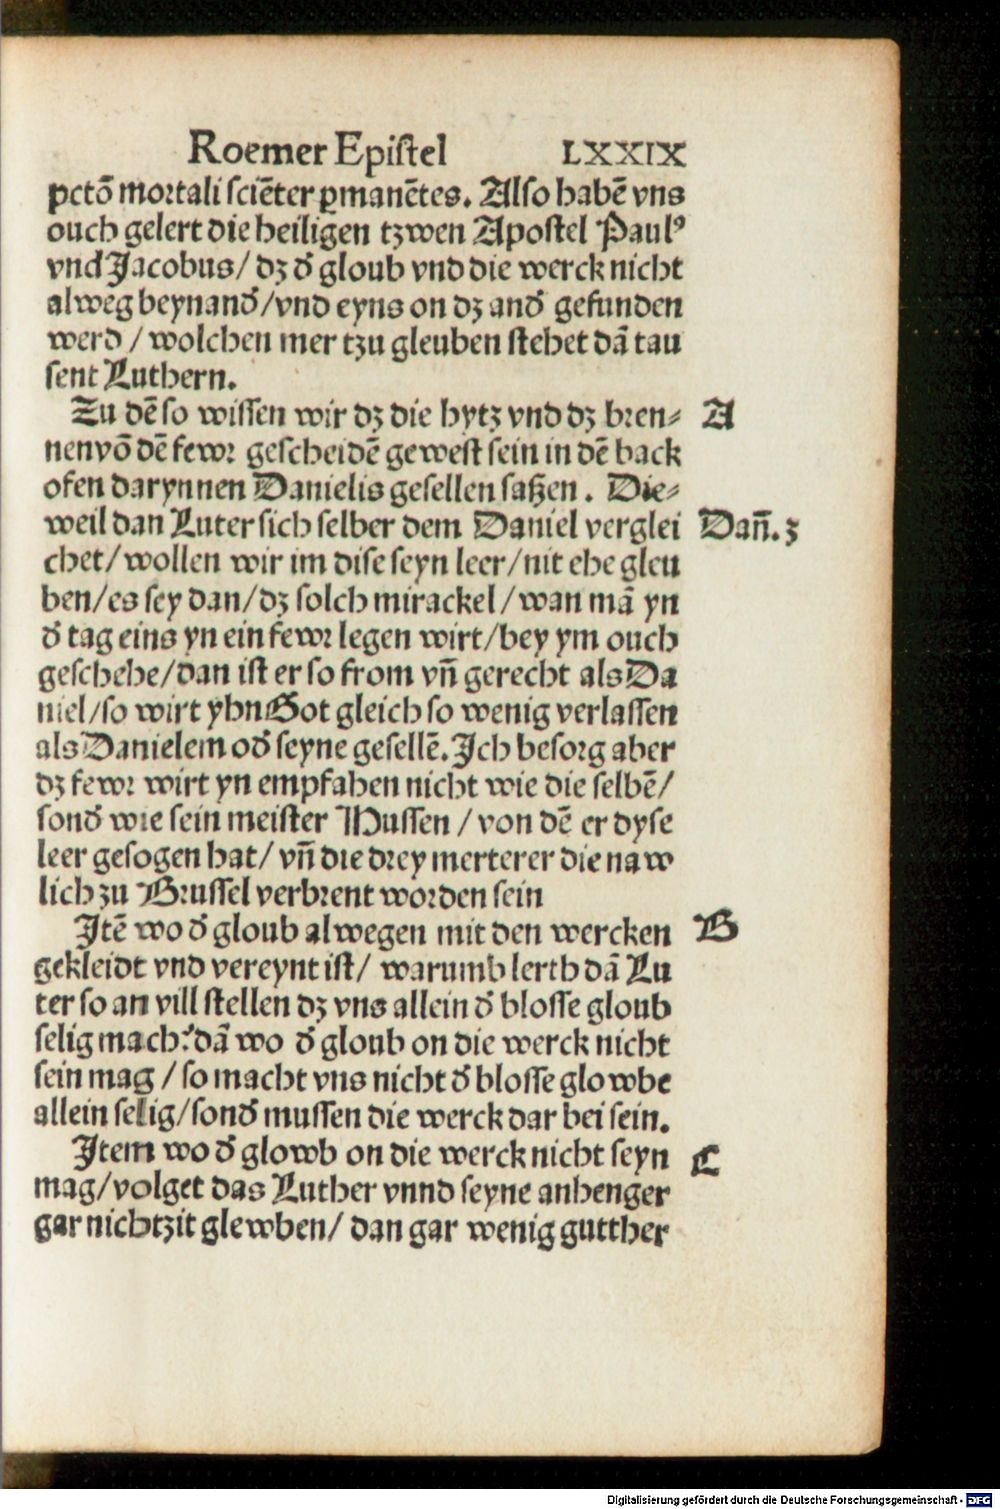 Roemer Epistel LXXIX
pctõ mortali sciẽter ꝑmanẽtes. Also habẽ vns
ouch gelert die heiligen tzwen Apostel Paulꝰ
vnd Jacobus/ dz d̕ gloub vnd die werck nicht
alweg beynand̕/vnd eyns on dz and̕ gefunden
werd / wolchen mer tzu gleuben stehet dã tau
sent Luthern.
Zu dẽ so wissen wir dz die hytz vnd dz bren⸗ A
nen võ dẽ fewr gescheidẽ gewest sein in dẽ back
ofen darynnen Danielis gesellen saßen. Die⸗
weil dan Luter sich selber dem Daniel verglei Dañ. 3
chet/wollen wir im dise seyn leer/nit ehe gleu
ben/es sey dan/dz solch mirackel/wan mã yn
d̕ tag eins yn ein fewr legen wirt/bey ym ouch
geschehe/dan ist er so from vñ gerecht als Da
niel/so wirt yhn Got gleich so wenig verlassen
als Danielem od̕ seyne gesellẽ. Ich besorg aber
dz fewr wirt yn empfahen nicht wie die selbẽ/
sond̕ wie sein meister Hussen / von dẽ er dyse
leer gesogen hat/ vñ die drey merterer die naw
lich zu Brussel verbrent worden sein
Itẽ wo d̕ gloub alwegen mit den wercken B
gekleidt vnd vereynt ist/ warumb lerth dã Lu
ter so an vill stellen dz vns allein d̕ blosse gloub
selig mach? dã wo d̕ gloub on die werck nicht
sein mag / so macht vns nicht d̕ blosse glowbe
allein selig/sond̕ mussen die werck dar bei sein.
Item wo d̕ glowb on die werck nicht seyn C
mag/volget das Luther vnnd seyne anhenger
gar nichtzit glewben/ dan gar wenig gutther
Digitalisierung gefördert durch die Deutsche Forschungsgemeinschaft - DFG